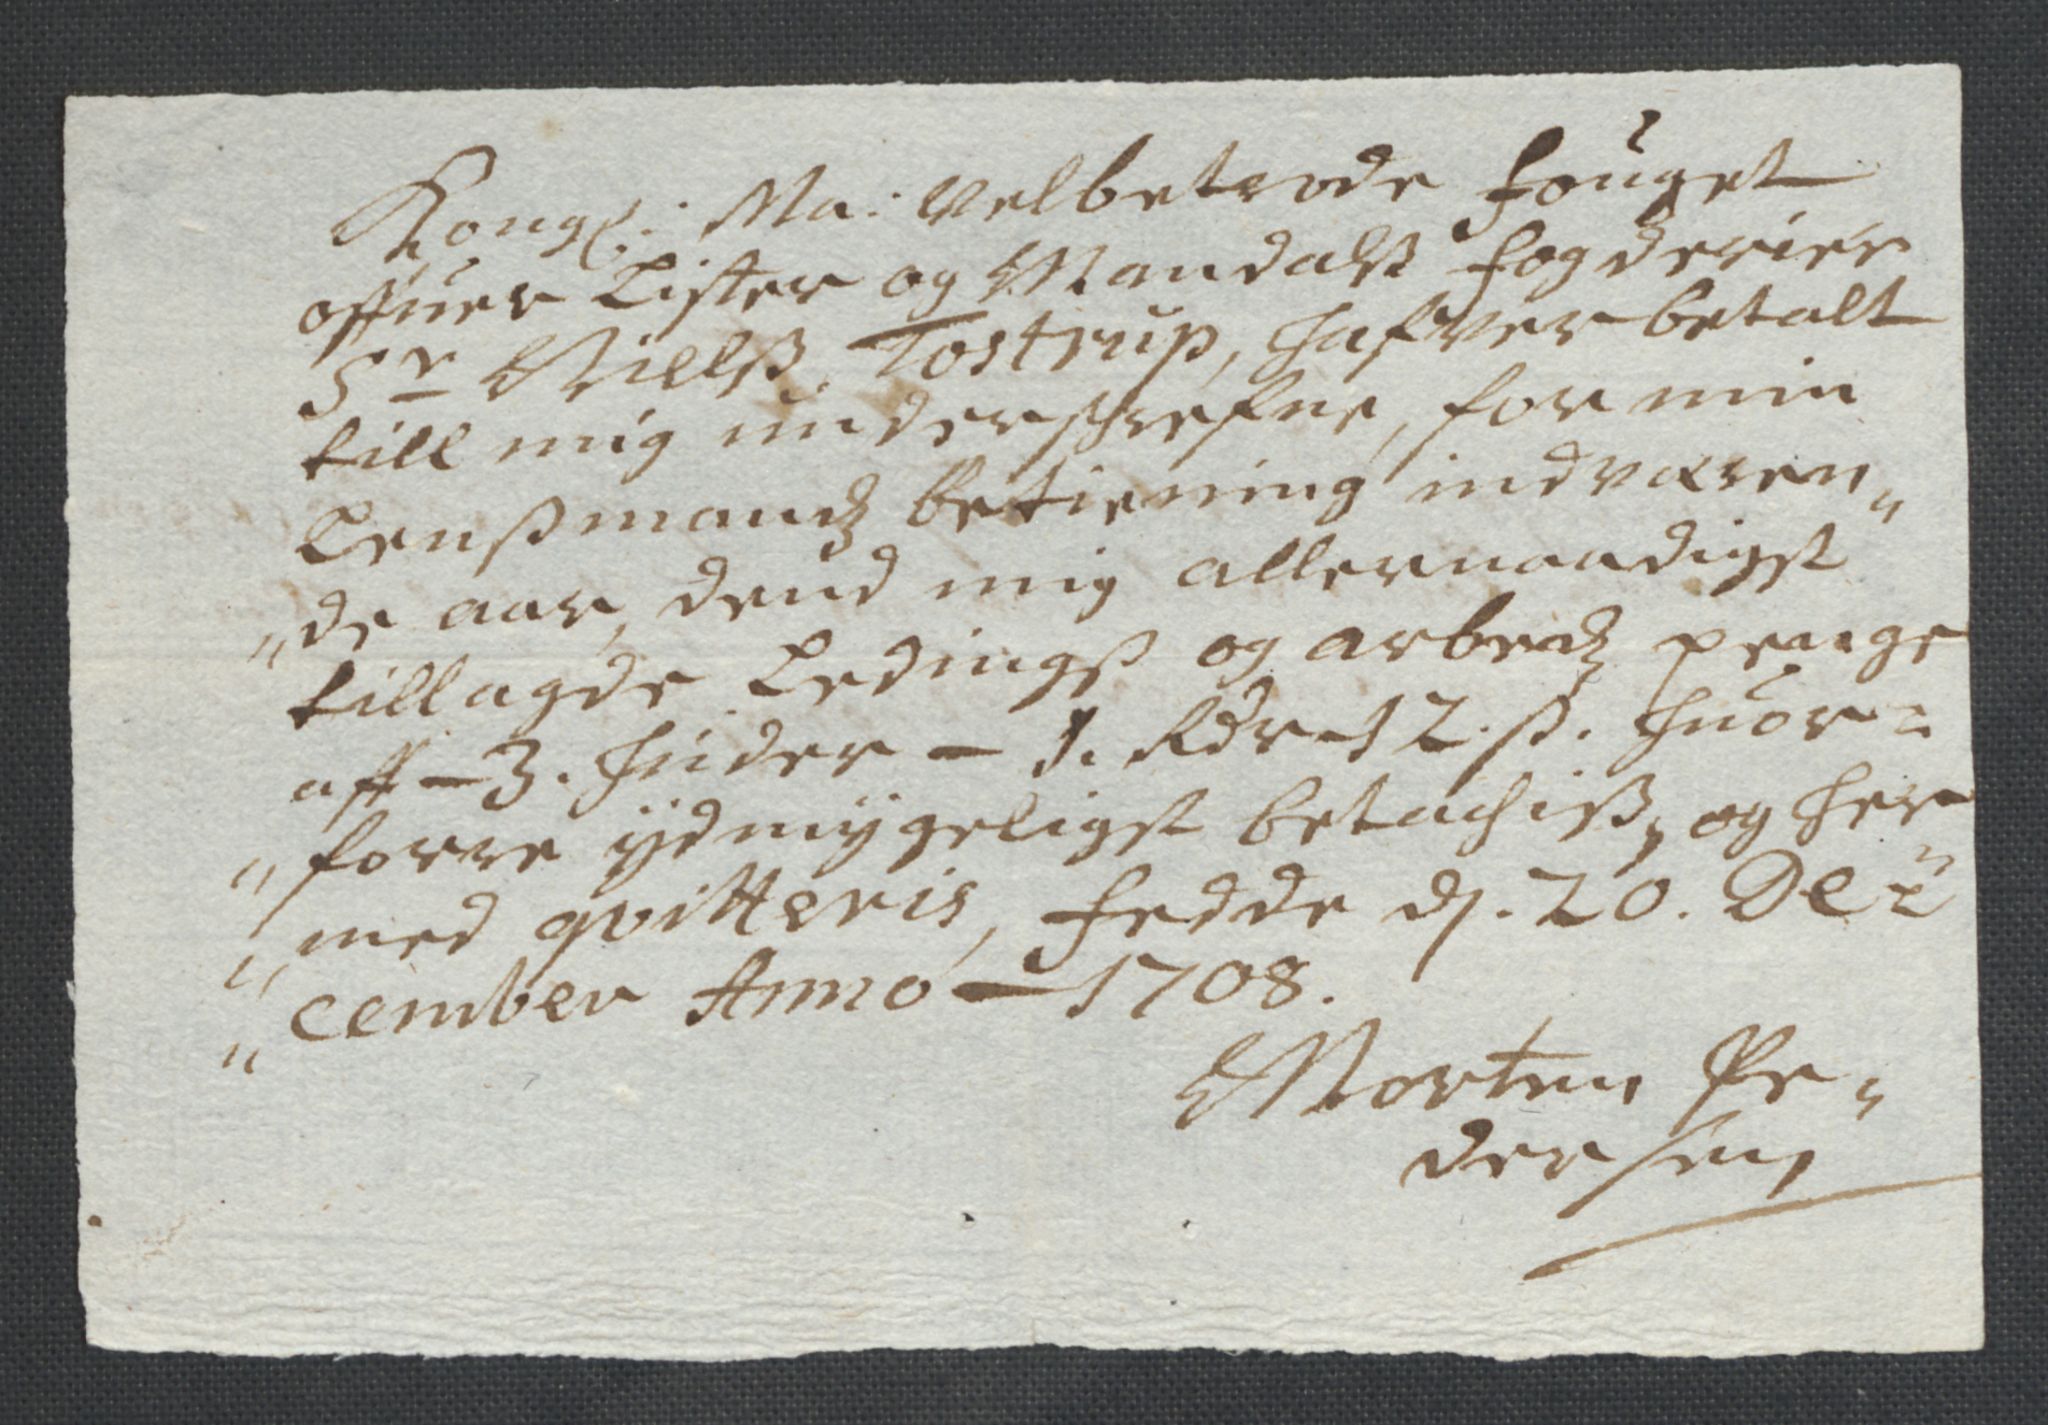 Kongl: Ma: Velbetrode fouget
offuer Lister og Mandalß fogderier
Sr Nillß Tostrup, hafver betalt
till mig underschrefne, for min
Lenßmandz betiening indværen„
„de aar, dend mig allernaadigst
tillagde Ledingß og arbedz penge
aff – 3. huder – 1. Rdr 12. ß. huor„
„forre ydmygeligst betachiß, og her„
„med qvitteris, Fedde d. 20. De„
„cember Anno – 1708.
Morten Pe„
dersen